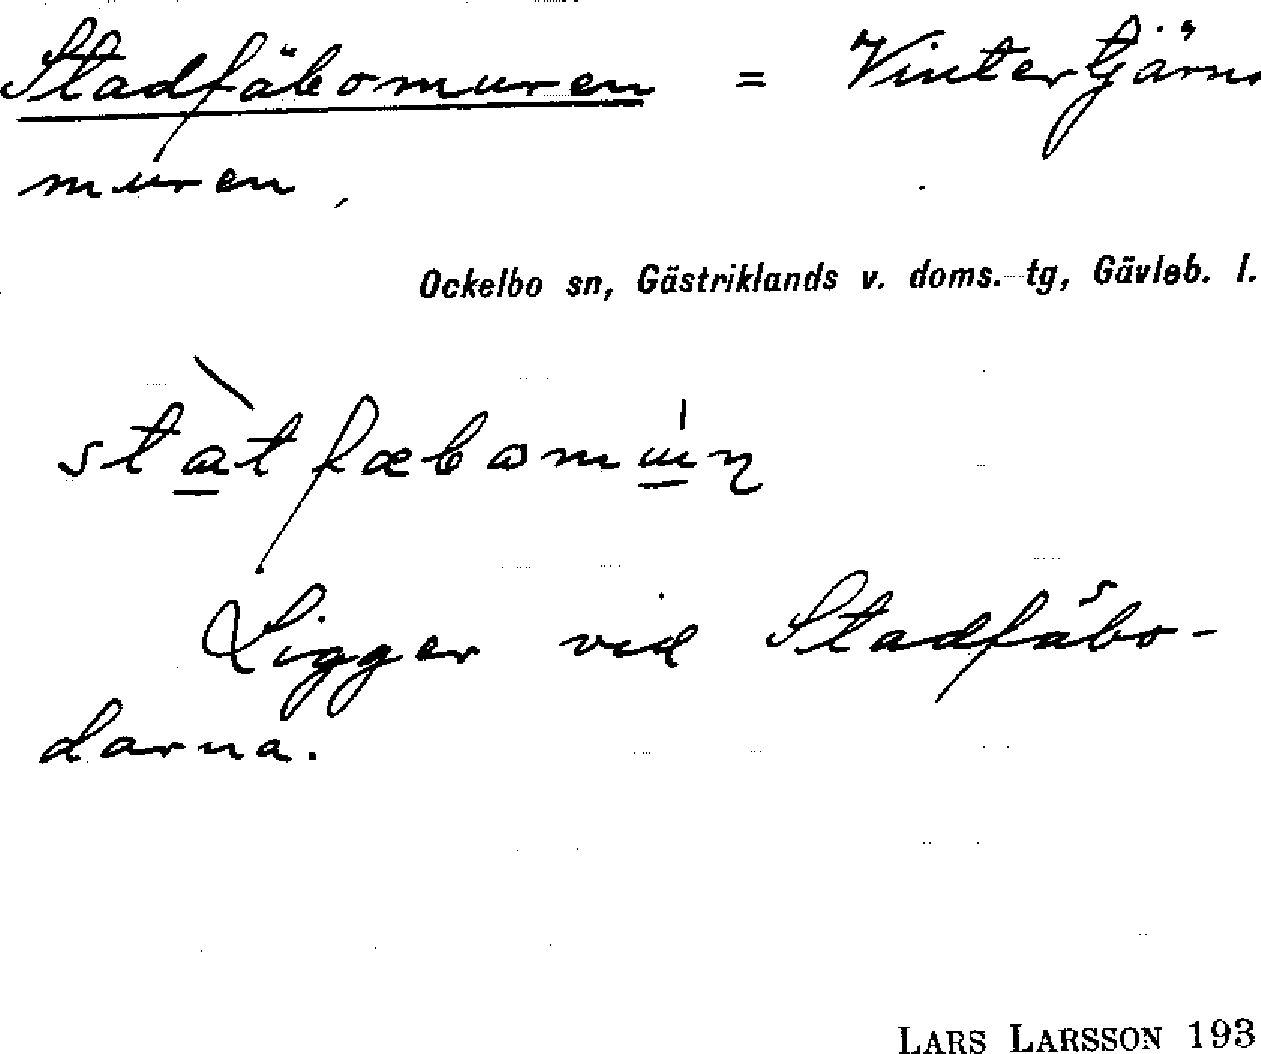 Stadfäbomuren = Vintertjärns
muren,
Ockelbo sn, Gästriklands v. doms. tg, Gävleb. l.
stàtfæbɷmúɳ
Ligger vid Stadfäbo-
darna.
LARS LARSSON 193